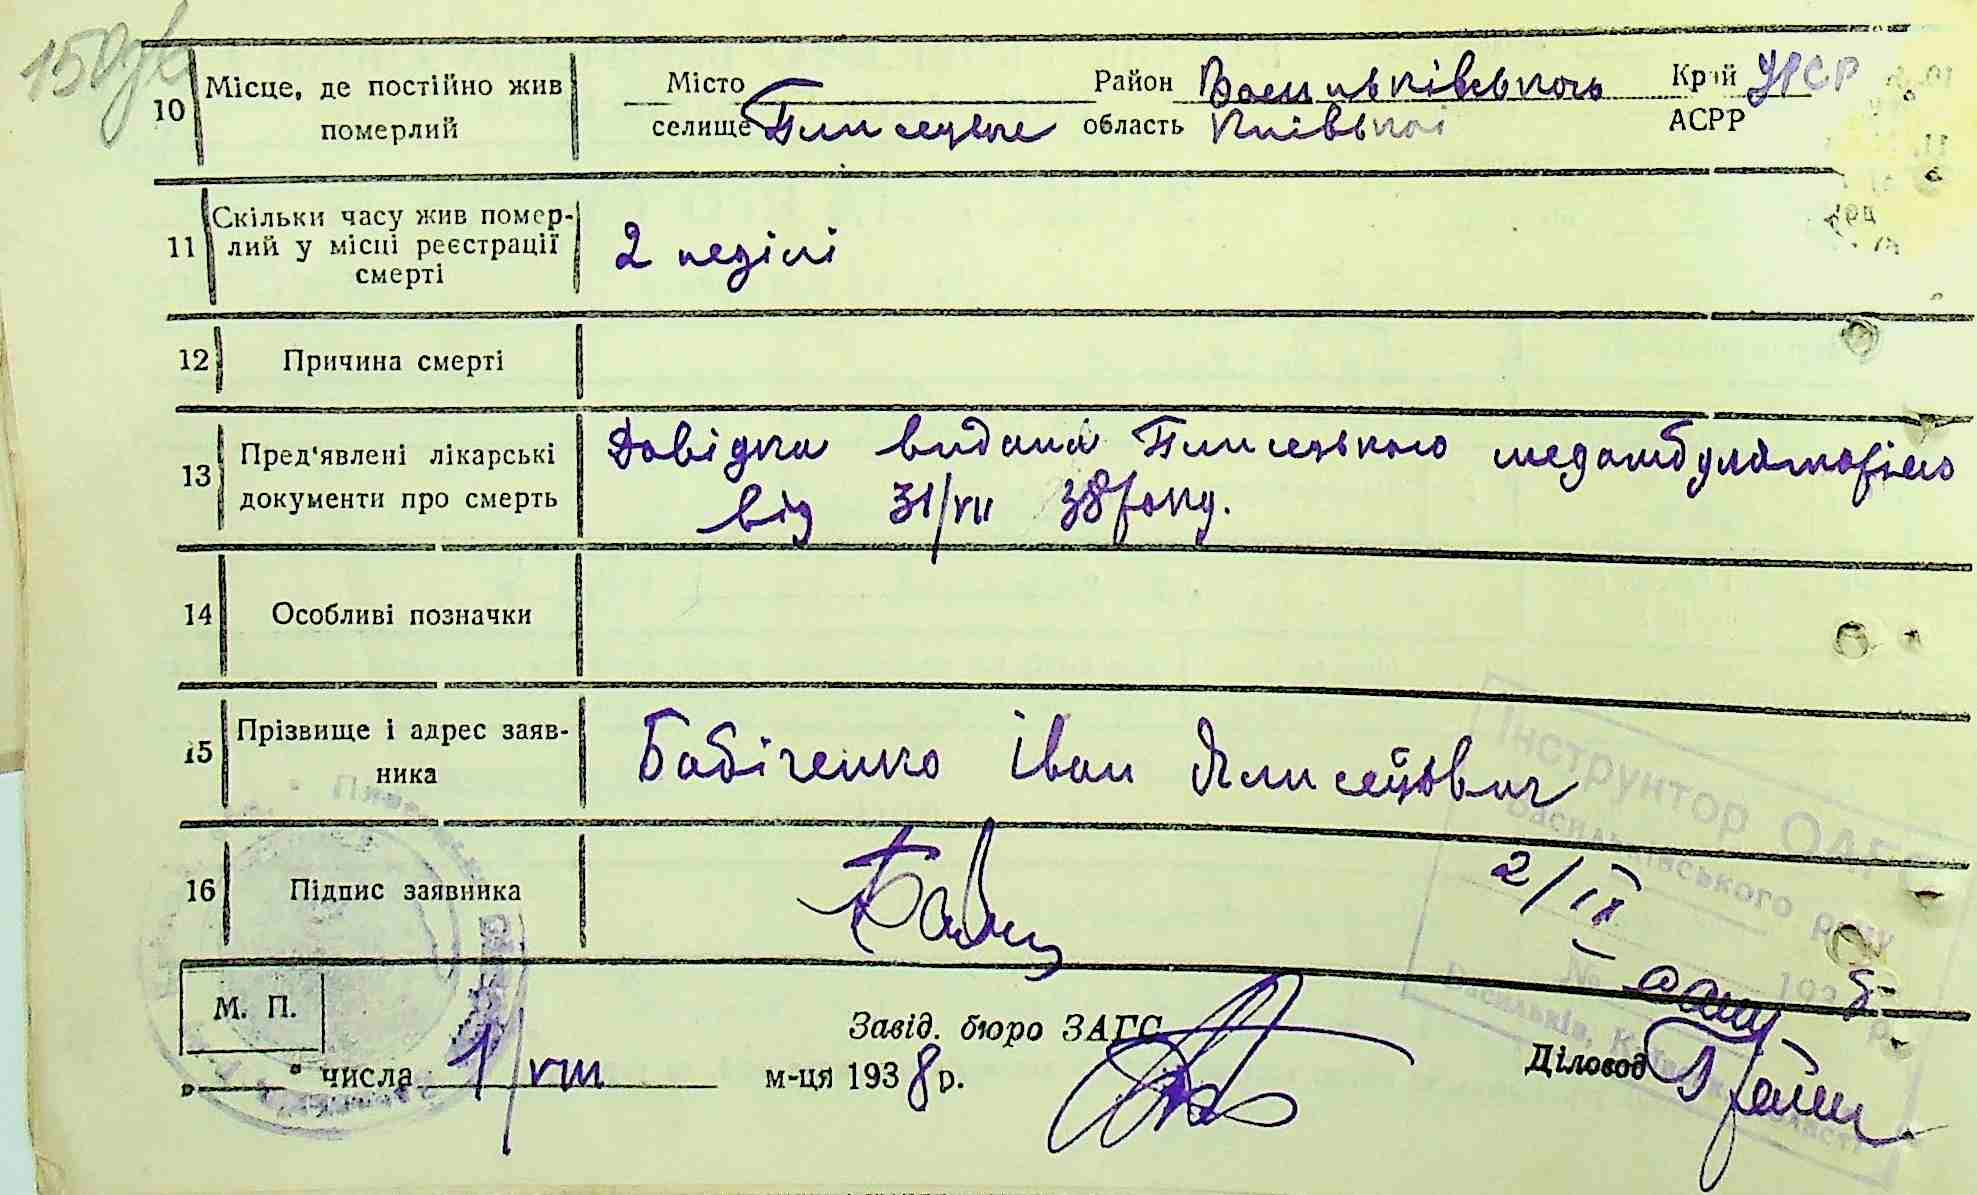 150
10 Місце, де постійно жив померлий
Місто Район Васильківського Край УРСР
селище Плисецьке область Київської АСРР
11 Скільки часу жив помер-
лий у місці реєстрації
смерті
2 неділі
12 Причина смерті
13 Пред'явлені лікарські
документи про смерть
Довідка видана Плисецькою медамбулаторією
від 31/VII 38 року.
14 Особливі позначки
15 Прізвище і адрес заяв-
ника
Бабіченко Іван Єлисейович
16 Підпис заявника
2/IX
Інструктор ОАГС
Васильківського р
№ 193 р.
Васильків, Київської області
М. П.
Завід. бюро ЗАГС
Діловод
„ " числа 1/VIII м-ця 1938 р.